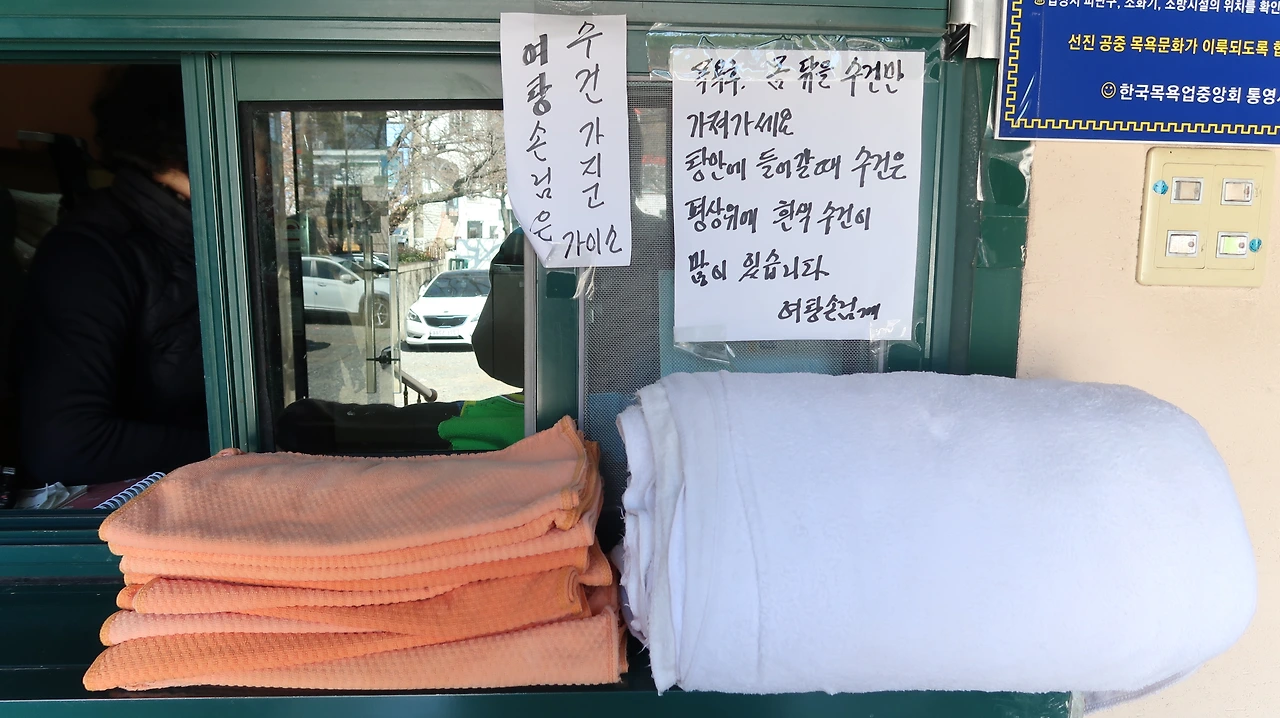 여탕손님은
수건가지고
가이소
목욕후, 몸 닦을 수건만
가져가세요
탕안에 들어갈때 수건은
평상위에 흰색 수건이
많이 있습니다
여탕손님께
피난구, 소화기, 소방시설의 위치를 확인
선진 공중 목욕문화가 이룩되도록
한국목욕업중앙회 통영